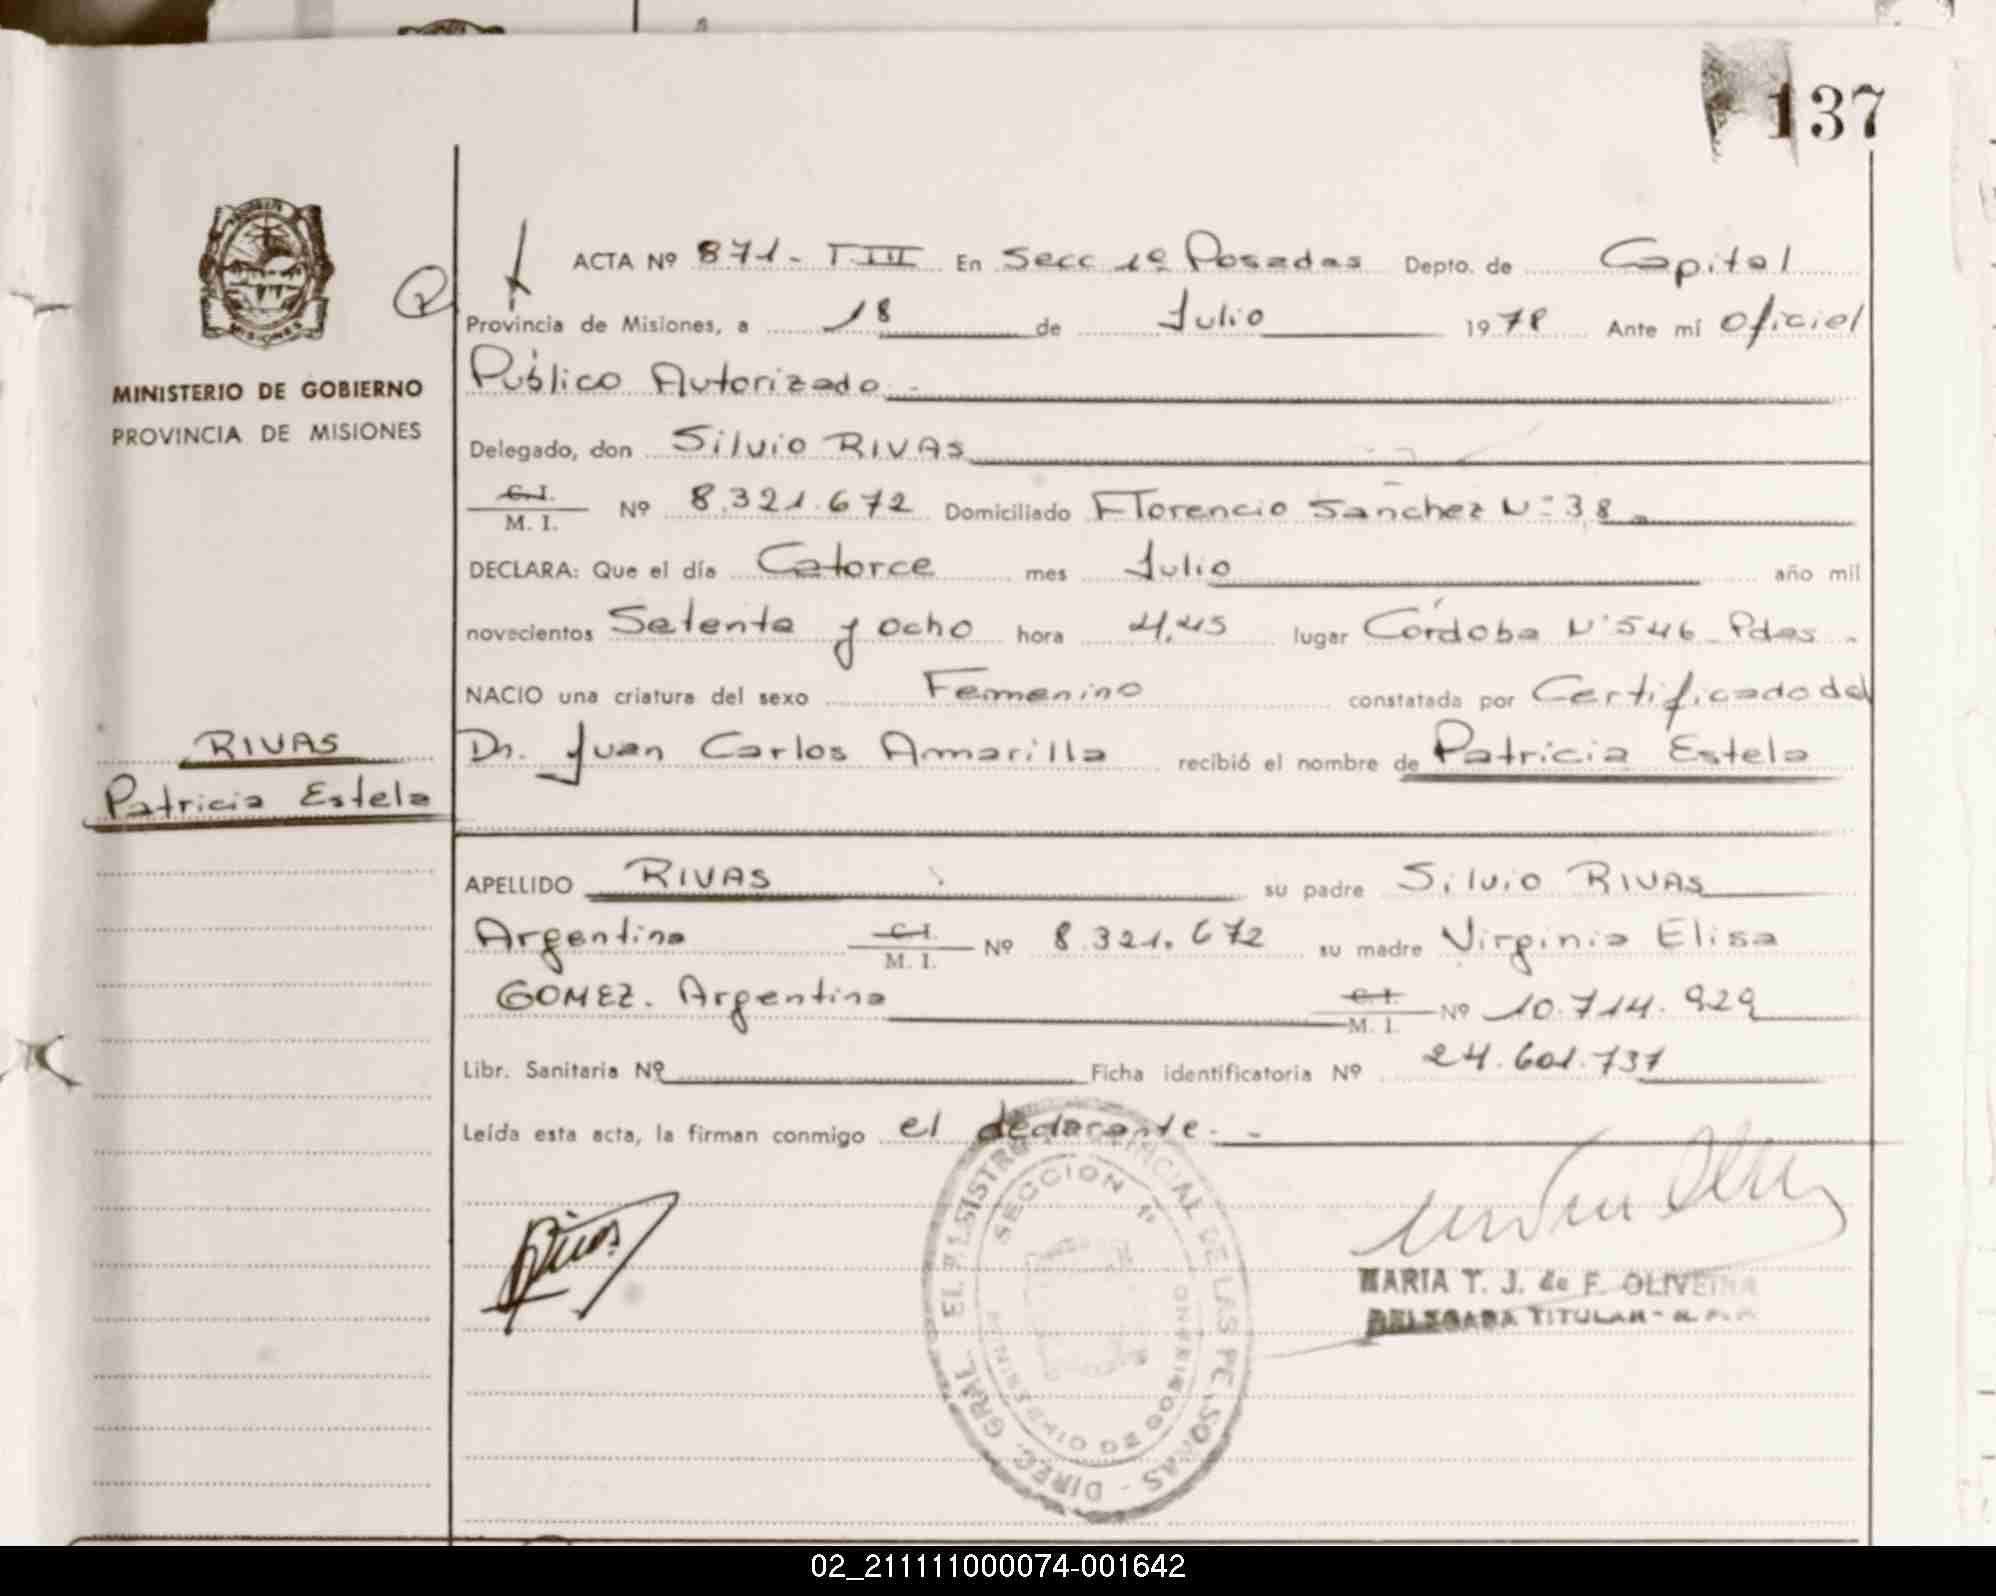 137
ACTA Nº 871 - T III En Secc 1º Posadas Depto. de Capital
Provincia de Misiones, a 18 de Julio 1978 Ante mí Oficial
Público Autorizado.-
Delegado, don Silvio RIVAS
C.I. M. I. Nº 8.321.672 Domiciliado Florencio Sanchez Nº 38.
DECLARA: Que el día Catorce mes Julio año mil
novecientos Setenta y ocho hora 4,45 lugar Córdoba Nº 546 - Pdas -
NACIO una criatura del sexo Femenino constatada por Certificado del
Dr. Juan Carlos Amarilla recibió el nombre de Patricia Estela
APELLIDO RIVAS su padre Silvio RIVAS
Argentino C.I. M. I. Nº 8.321.672 su madre Virginia Elisa
GOMEZ. Argentina C.I. M. I. Nº 10.714.929
Libr. Sanitaria Nº Ficha identificatoria Nº 24.601.737
Leída esta acta, la firman conmigo el declarante. -
MISIONES
MINISTERIO DE GOBIERNO
PROVINCIA DE MISIONES
RIVAS
Patricia Estela
Rivas
DIREC. GRAL. DE LAS PERSONAS
SECCION 1ª
MINISTERIO DE GOBIERNO
MARIA T. J. de F. OLIVEIRA
DELEGADA TITULAR - R.P.P.
02_211111000074-001642